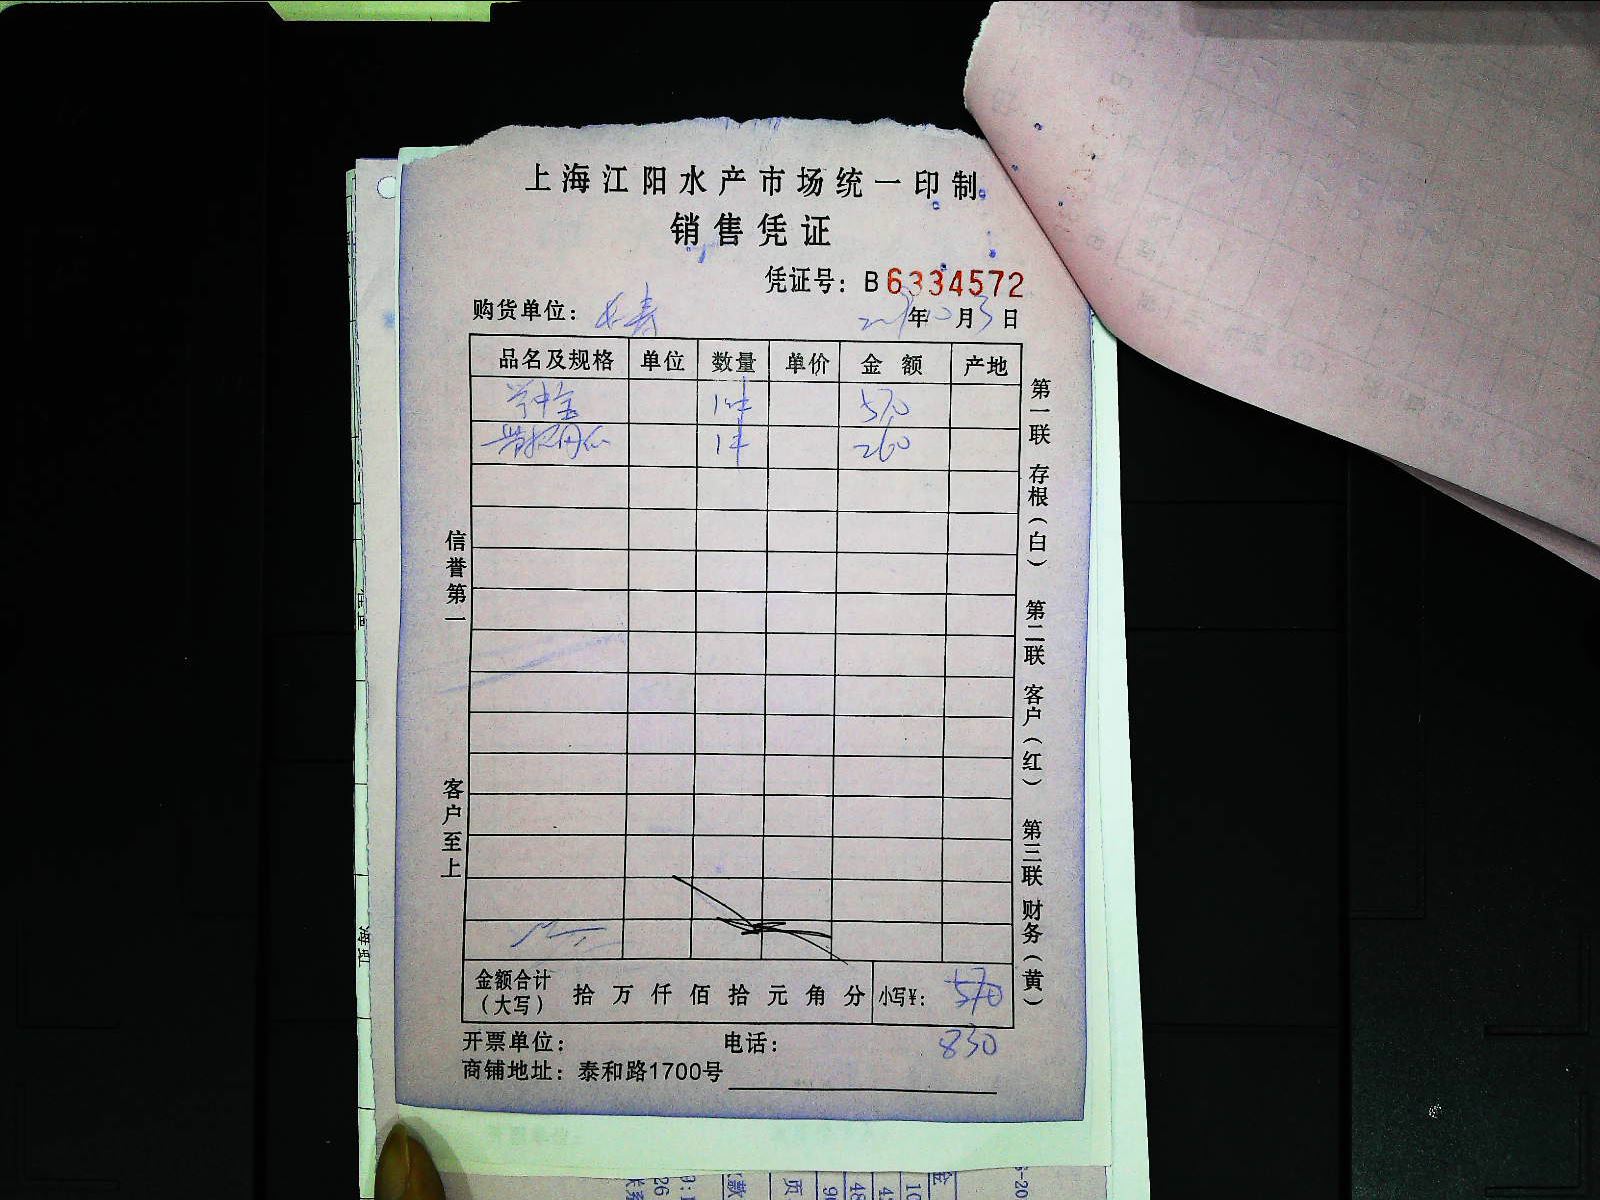 上海江阳水产市场统一印制
销售凭证
凭证号：B6334572
购货单位：长寿 年10月3日
品名及规格 单位 数量 单价 金额 产地
1件 570
1件 260
信誉第一
客户至上
第一联 存根（白） 第二联 客户（红） 第三联 财务（黄）
金额合计（大写） 拾 万 仟 佰 拾 元 角 分 小写¥：570
830
开票单位： 电话：
商铺地址：泰和路1700号